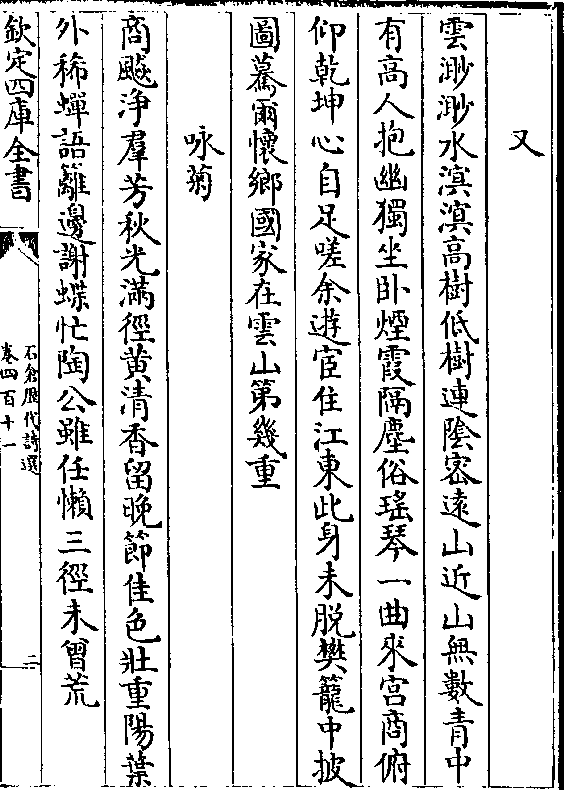 又
雲渺渺水溟溟高樹低樹連陰密遠山近山無數青中
有高人抱幽獨坐卧煙霞隔塵俗瑤琴一曲來宫商俯
仰乾坤心自足嗟余遊宦住江東此身未脱樊籠中披
圖驀爾懷鄉國家在雲山第幾重
咏菊
商飈净羣芳秋光滿徑黄清香留晚節佳色壯重陽葉
外稀蟬語籬邊謝蝶忙陶公雖任懶三徑未曾荒
欽定四庫全書
石倉歷代詩選
卷四百十一
二